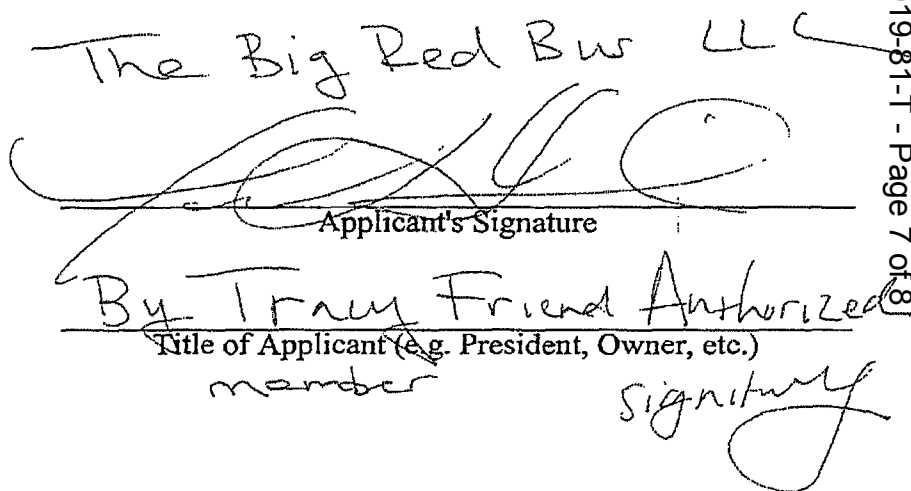 The Big Red Bus LLC
Applicant's Signature
By Tracy Friend Authorized
Title of Applicant (e.g. President, Owner, etc.)
member signitury
19-81-T - Page 7 of 8